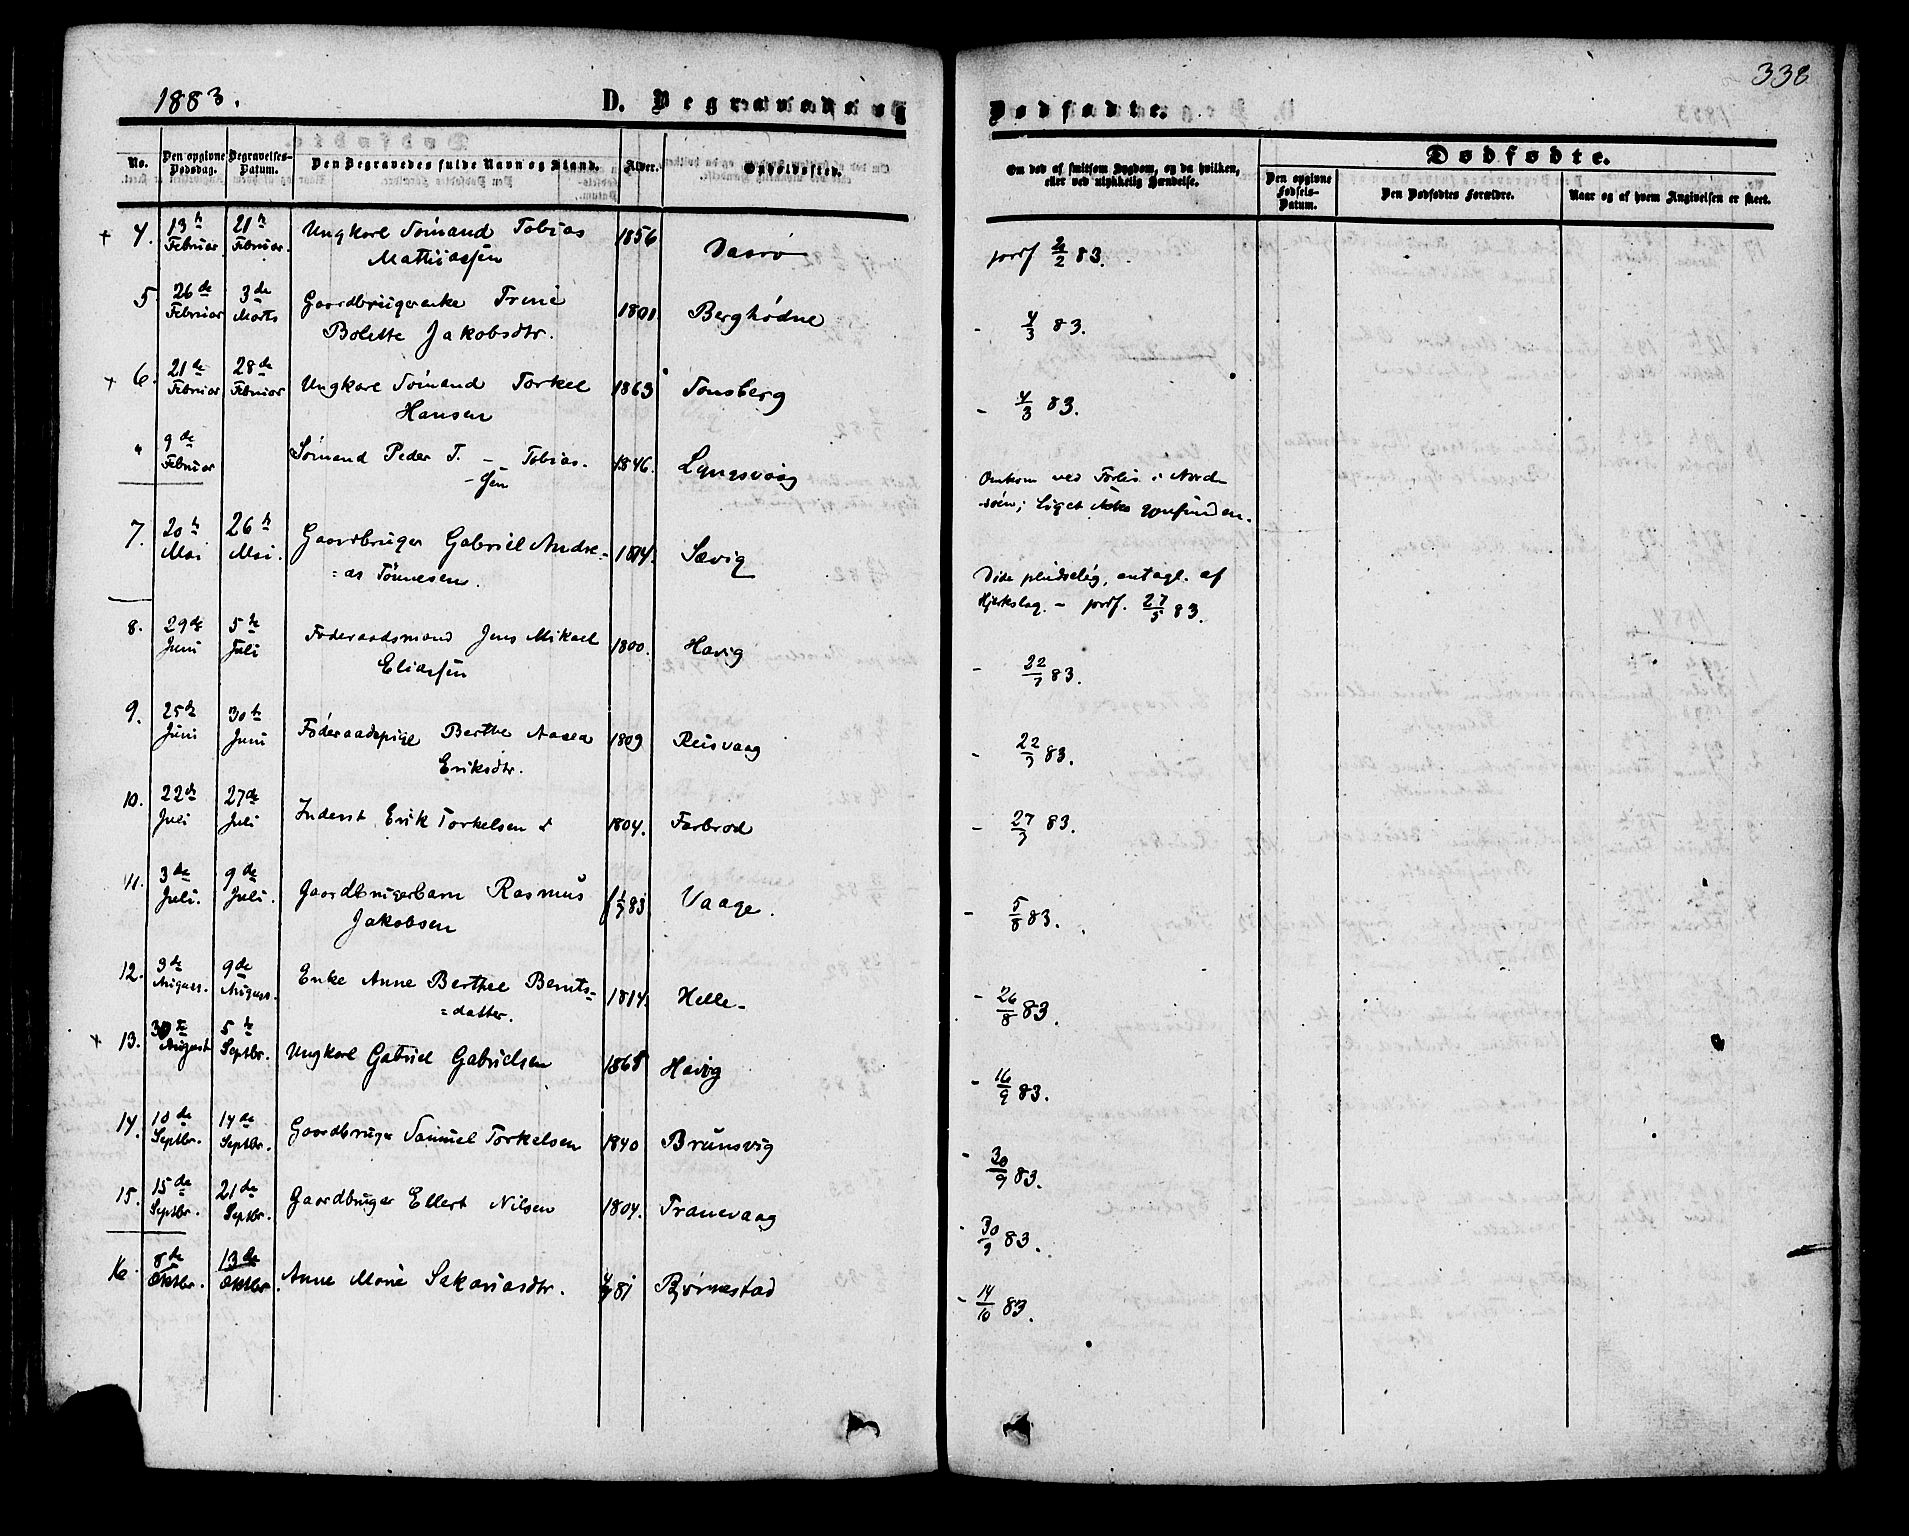 1883.
D. Begravede og
Dødfødte.
338
No.
Den opgivne Dødsdag.
Begravelses-Datum.
Den Begravedes fulde Navn og Stand.
Alder.
Opholdssted.
Om død af smitsom Sygdom, og da hvilken,
eller ved ulykkelig Hændelse.
Dødfødte.
Den opgivne Fødsels-Datum.
Den Dødfødtes Forældre.
Naar og af hvem Angivelsen er skeet.
+ 4. 13de Februar 21de Februar. Ungkarl Sømand Tobias Mathiassen 1856 prof 2/2 83.
5. 26de Februar 3de Marts Gaardbrugerenke Trine Bolette Jakobsdtr. 1801 Berghødne - 4/3 83.
+ 6. 21de Februar 28de Februar Ungkarl Sømand Torkel Hansen 1863 Tonsberg - 4/3 83.
" 9de Februar Sømand Peder T. Tobias-sen 1846. Lyngsvaag Omkom ved Forlis i Nord-
søen; Liget ikke gjenfunden.
7. 20de Mai 26de Mai. Gaardbruger Gabriel Andre-
=as Tønnesen. 1814. Sævig Døde pludselig, antagl. af
Hjerteslag. - prof. 27/5 83.
8. 29de Juni 5te Juli Føderaadsmand Jens Mikael Eliassen 1800. Havig - 22/7 83.
9. 25de Juni 30te Juni Føderaadspige Berthe Aasea Eriksdtr. 1809 Reisvaag - 22/7 83.
10. 22de Juli 27de Juli Inderst Erik Torkelsen 1804. Farbrod - 27/7 83.
11. 3de Juli. 9de Juli. Gaardbrugerbarn Rasmus Jakobsen 1/7 83 Vaage. - 5/8 83.
12. 3de August. 9de August. Enke Anne Berthe Bernts-
=datter. 1814. Helle - 26/8 83.
+ 13. 30te August 5te Septbr. Ungkarl Gabriel Gabrielsen 1868 Havig - 16/9 83.
14. 10de Septbr. 14de Septbr. Gaardbruger Samuel Torkelsen 1840 Brunsvig - 30/9 83.
15. 15de Septbr. 21de Septbr. Gaardbruger Ellert Nilsen 1804. Tranevaag - 30/9 83.
16. 8de Oktbr. 13de Oktbr. Anne Marie Sakariasdtr. 81 Bjørnestad - 14/10 83.